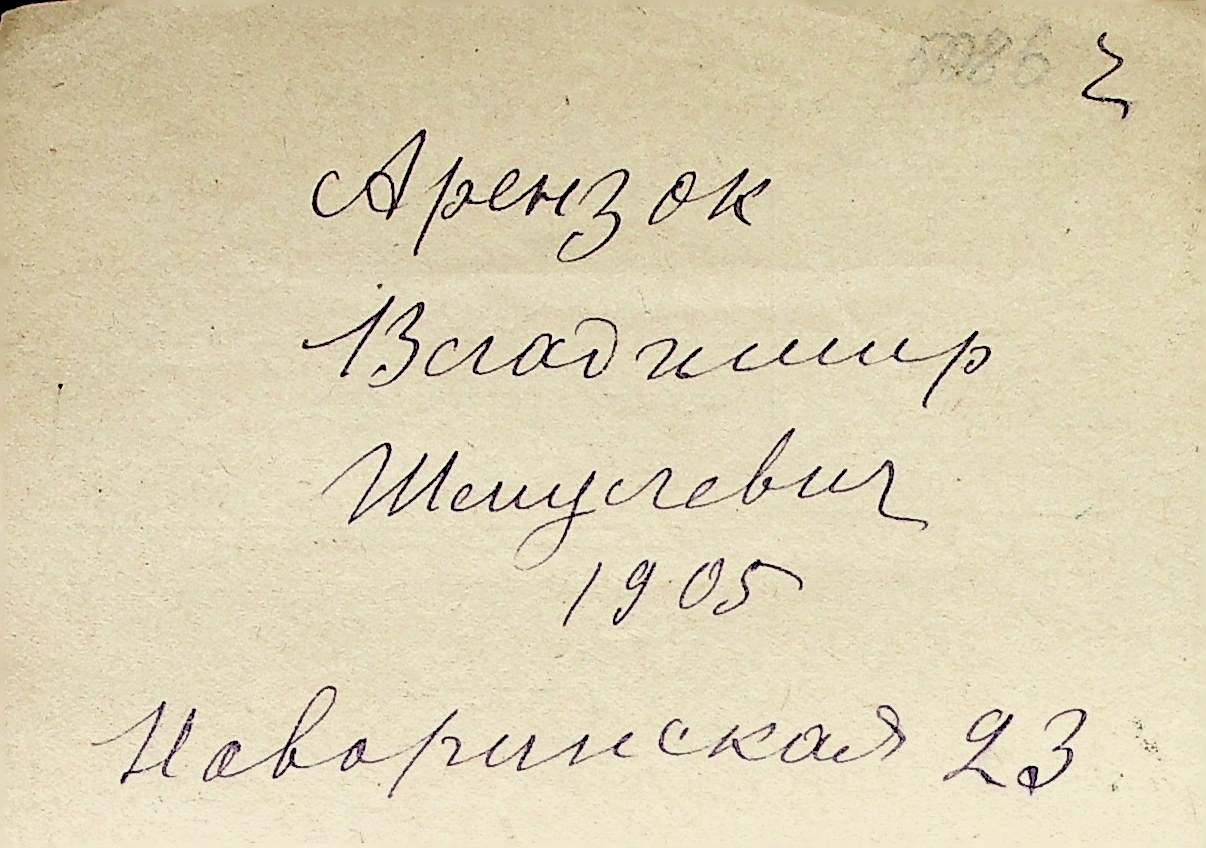 Арензок
Владимир
Шмулевич
1905
Новоринская 23